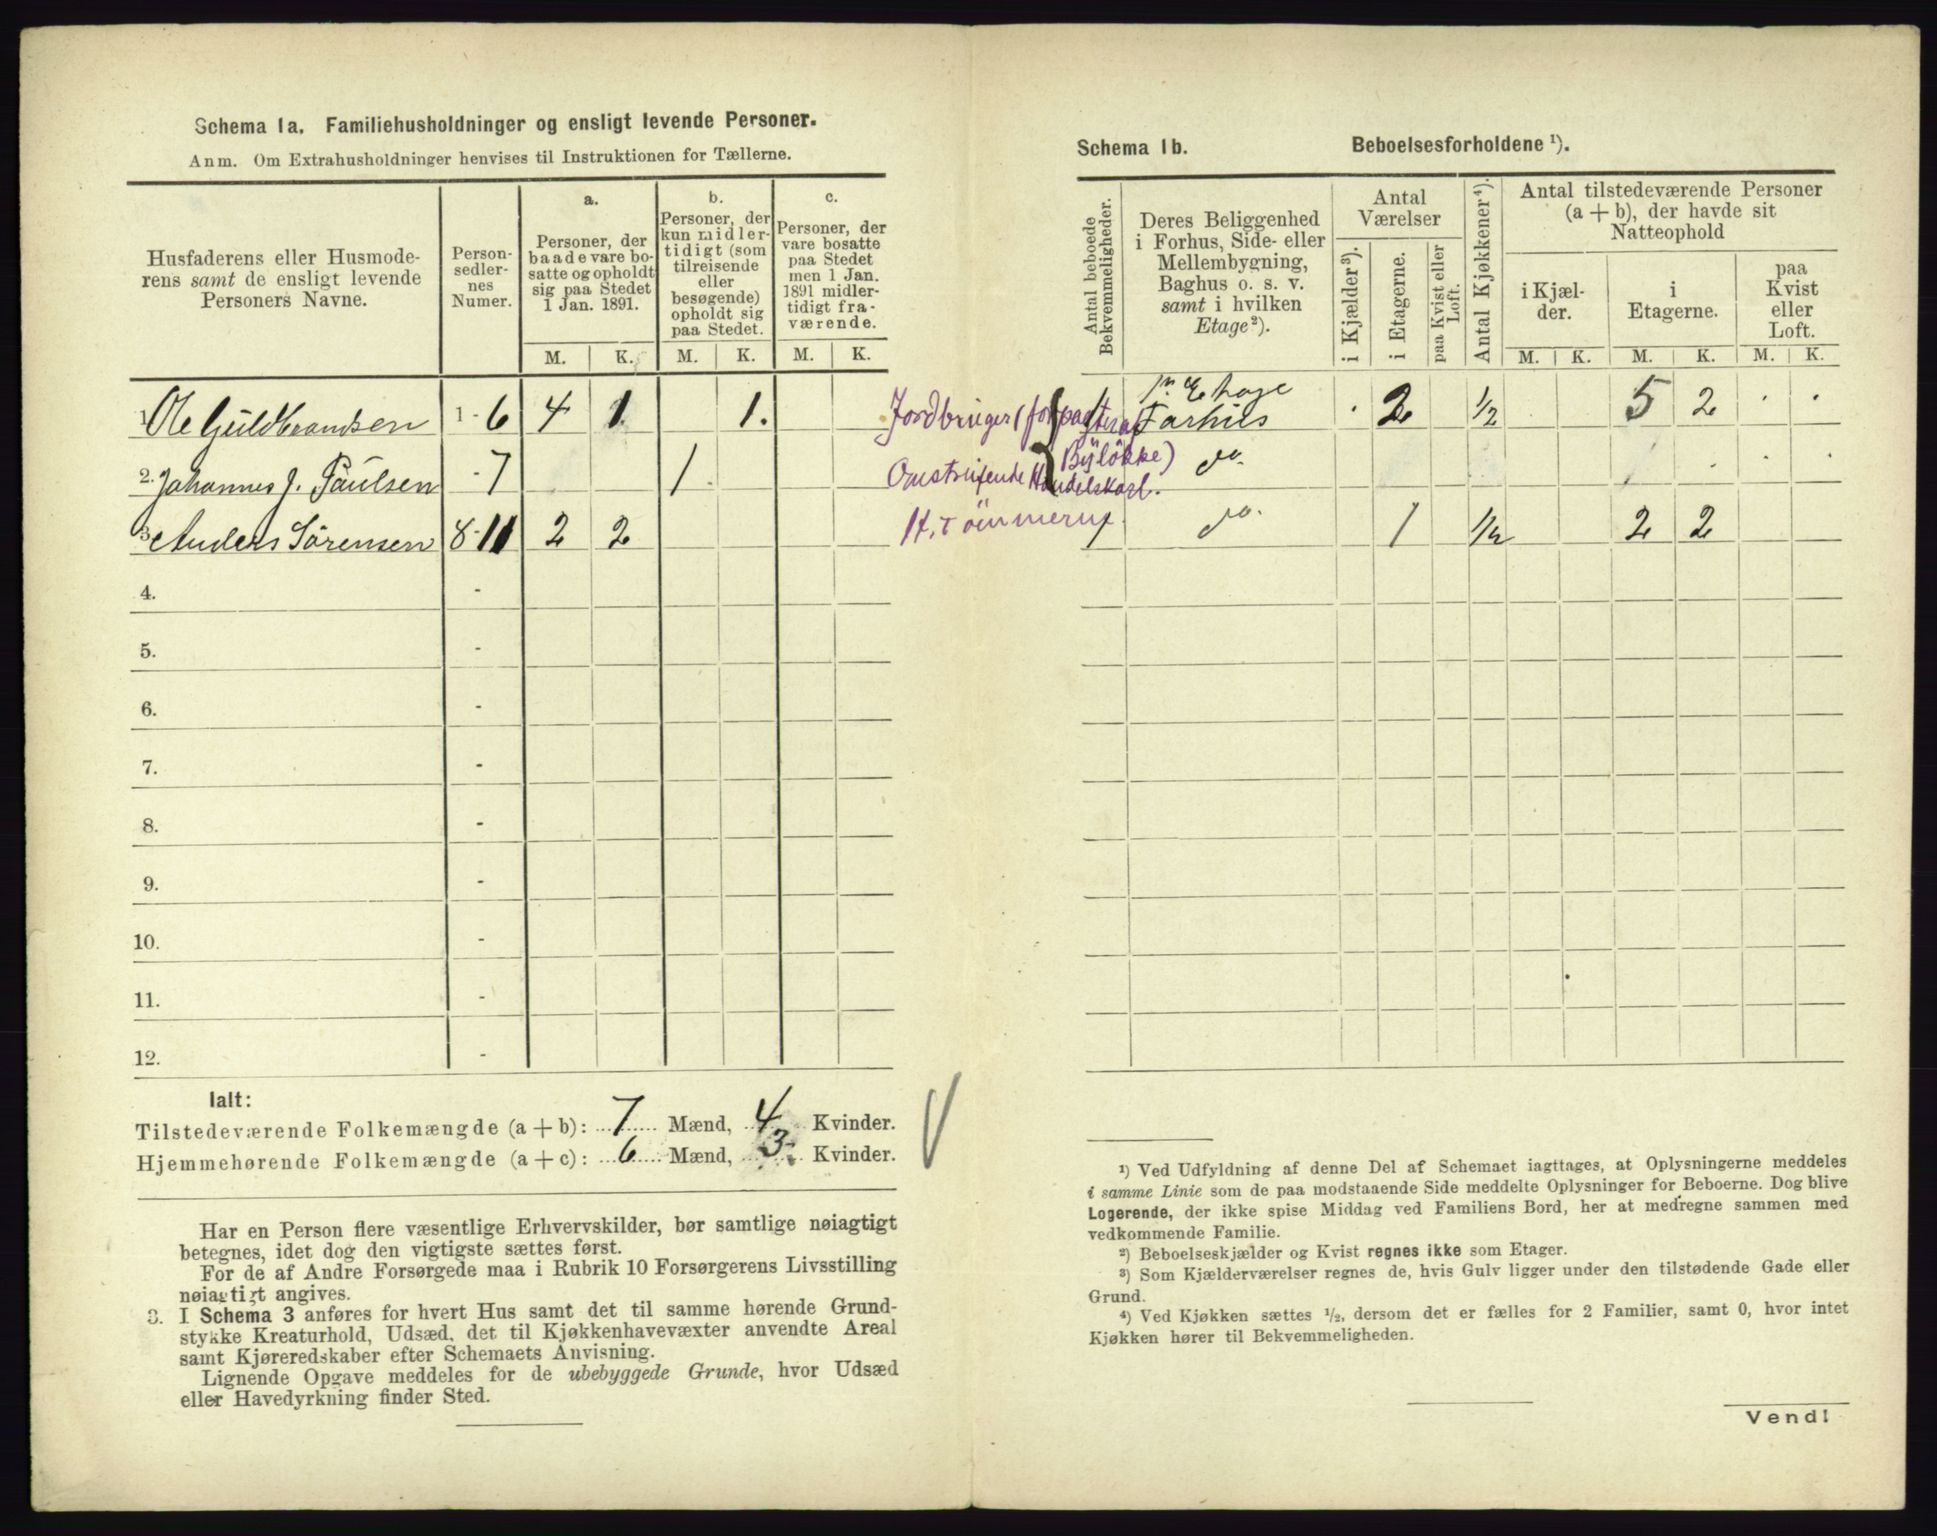 Schema 1 a. Familiehusholdninger og ensligt levende Personer.
Anm. Om Extrahusholdninger henvises til Instruktionen for Tællerne.
Husfaderens eller Husmoderens samt de ensligt levende Personers Navne.
Person-sedler-nes Numer.
a. Personer, der baade vare bosatte og opholdt sig paa Stedet 1 Jan. 1891.
b. Personer, der kun midlertidigt (som tilreisende eller besøgende) opholdt sig paa Stedet.
c. Personer, der vare bosatte paa Stedet men 1 Jan. 1891 midlertidigt fraværende.
M. K. M. K. M. K.
1. Ole Guldbrandsen 1-6 4 1. 1.
2. Johannes J. Paulsen -7 1
3. Anders Sörensen 8-11 2 2
4. -
5. -
6. -
7. -
8. -
9. -
10. -
11. -
12. -
Ialt:
Tilstedeværende Folkemængde (a + b): 7 Mænd, 4 Kvinder.
Hjemmehørende Folkemængde (a + c): 6 Mænd, 3 Kvinder.
Har en Person flere væsentlige Erhvervskilder, bør samtlige nøiagtigt
betegnes, idet dog den vigtigste sættes først.
For de af Andre Forsørgede maa i Rubrik 10 Forsørgerens Livsstilling
nøiagtigt angives.
3. I Schema 3 anføres for hvert Hus samt det til samme hørende Grund-
stykke Kreaturhold, Udsæd, det til Kjøkkenhavevæxter anvendte Areal
samt Kjøreredskaber efter Schemaets Anvisning.
Lignende Opgave meddeles for de ubebyggede Grunde, hvor Udsæd
eller Havedyrkning finder Sted.
Schema 1 b. Beboelsesforholdene ¹).
Antal beboede Bekvemmeligheder.
Deres Beliggenhed i Forhus, Side- eller Mellembygning, Baghus o. s. v. samt i hvilken Etage ²).
Antal Værelser
i Kjælder ³).
i Etagerne.
paa Kvist eller Loft.
Antal Kjøkkener ⁴).
Antal tilstedeværende Personer (a + b), der havde sit Natteophold
i Kjælder.
i Etagerne.
paa Kvist eller Loft.
M. K. M. K. M. K.
Jordbruger (forpagter af
Byløkke)
1 1ⁿ Ethage
Forhus . 2 1/2 5 2 . .
Omstreifende Handelskarl. do.
H. Tömmerm. do. 1 1/2 2 2
¹) Ved Udfyldning af denne Del af Schemaet iagttages, at Oplysningerne meddeles
i samme Linie som de paa modstaaende Side meddelte Oplysninger for Beboerne. Dog blive
Logerende, der ikke spise Middag ved Familiens Bord, her at medregne sammen med
vedkommende Familie.
²) Beboelseskjælder og Kvist regnes ikke som Etager.
³) Som Kjælderværelser regnes de, hvis Gulv ligger under den tilstødende Gade eller
Grund.
⁴) Ved Kjøkken sættes ½, dersom det er fælles for 2 Familier, samt 0, hvor intet
Kjøkken hører til Bekvemmeligheden.
Vend!